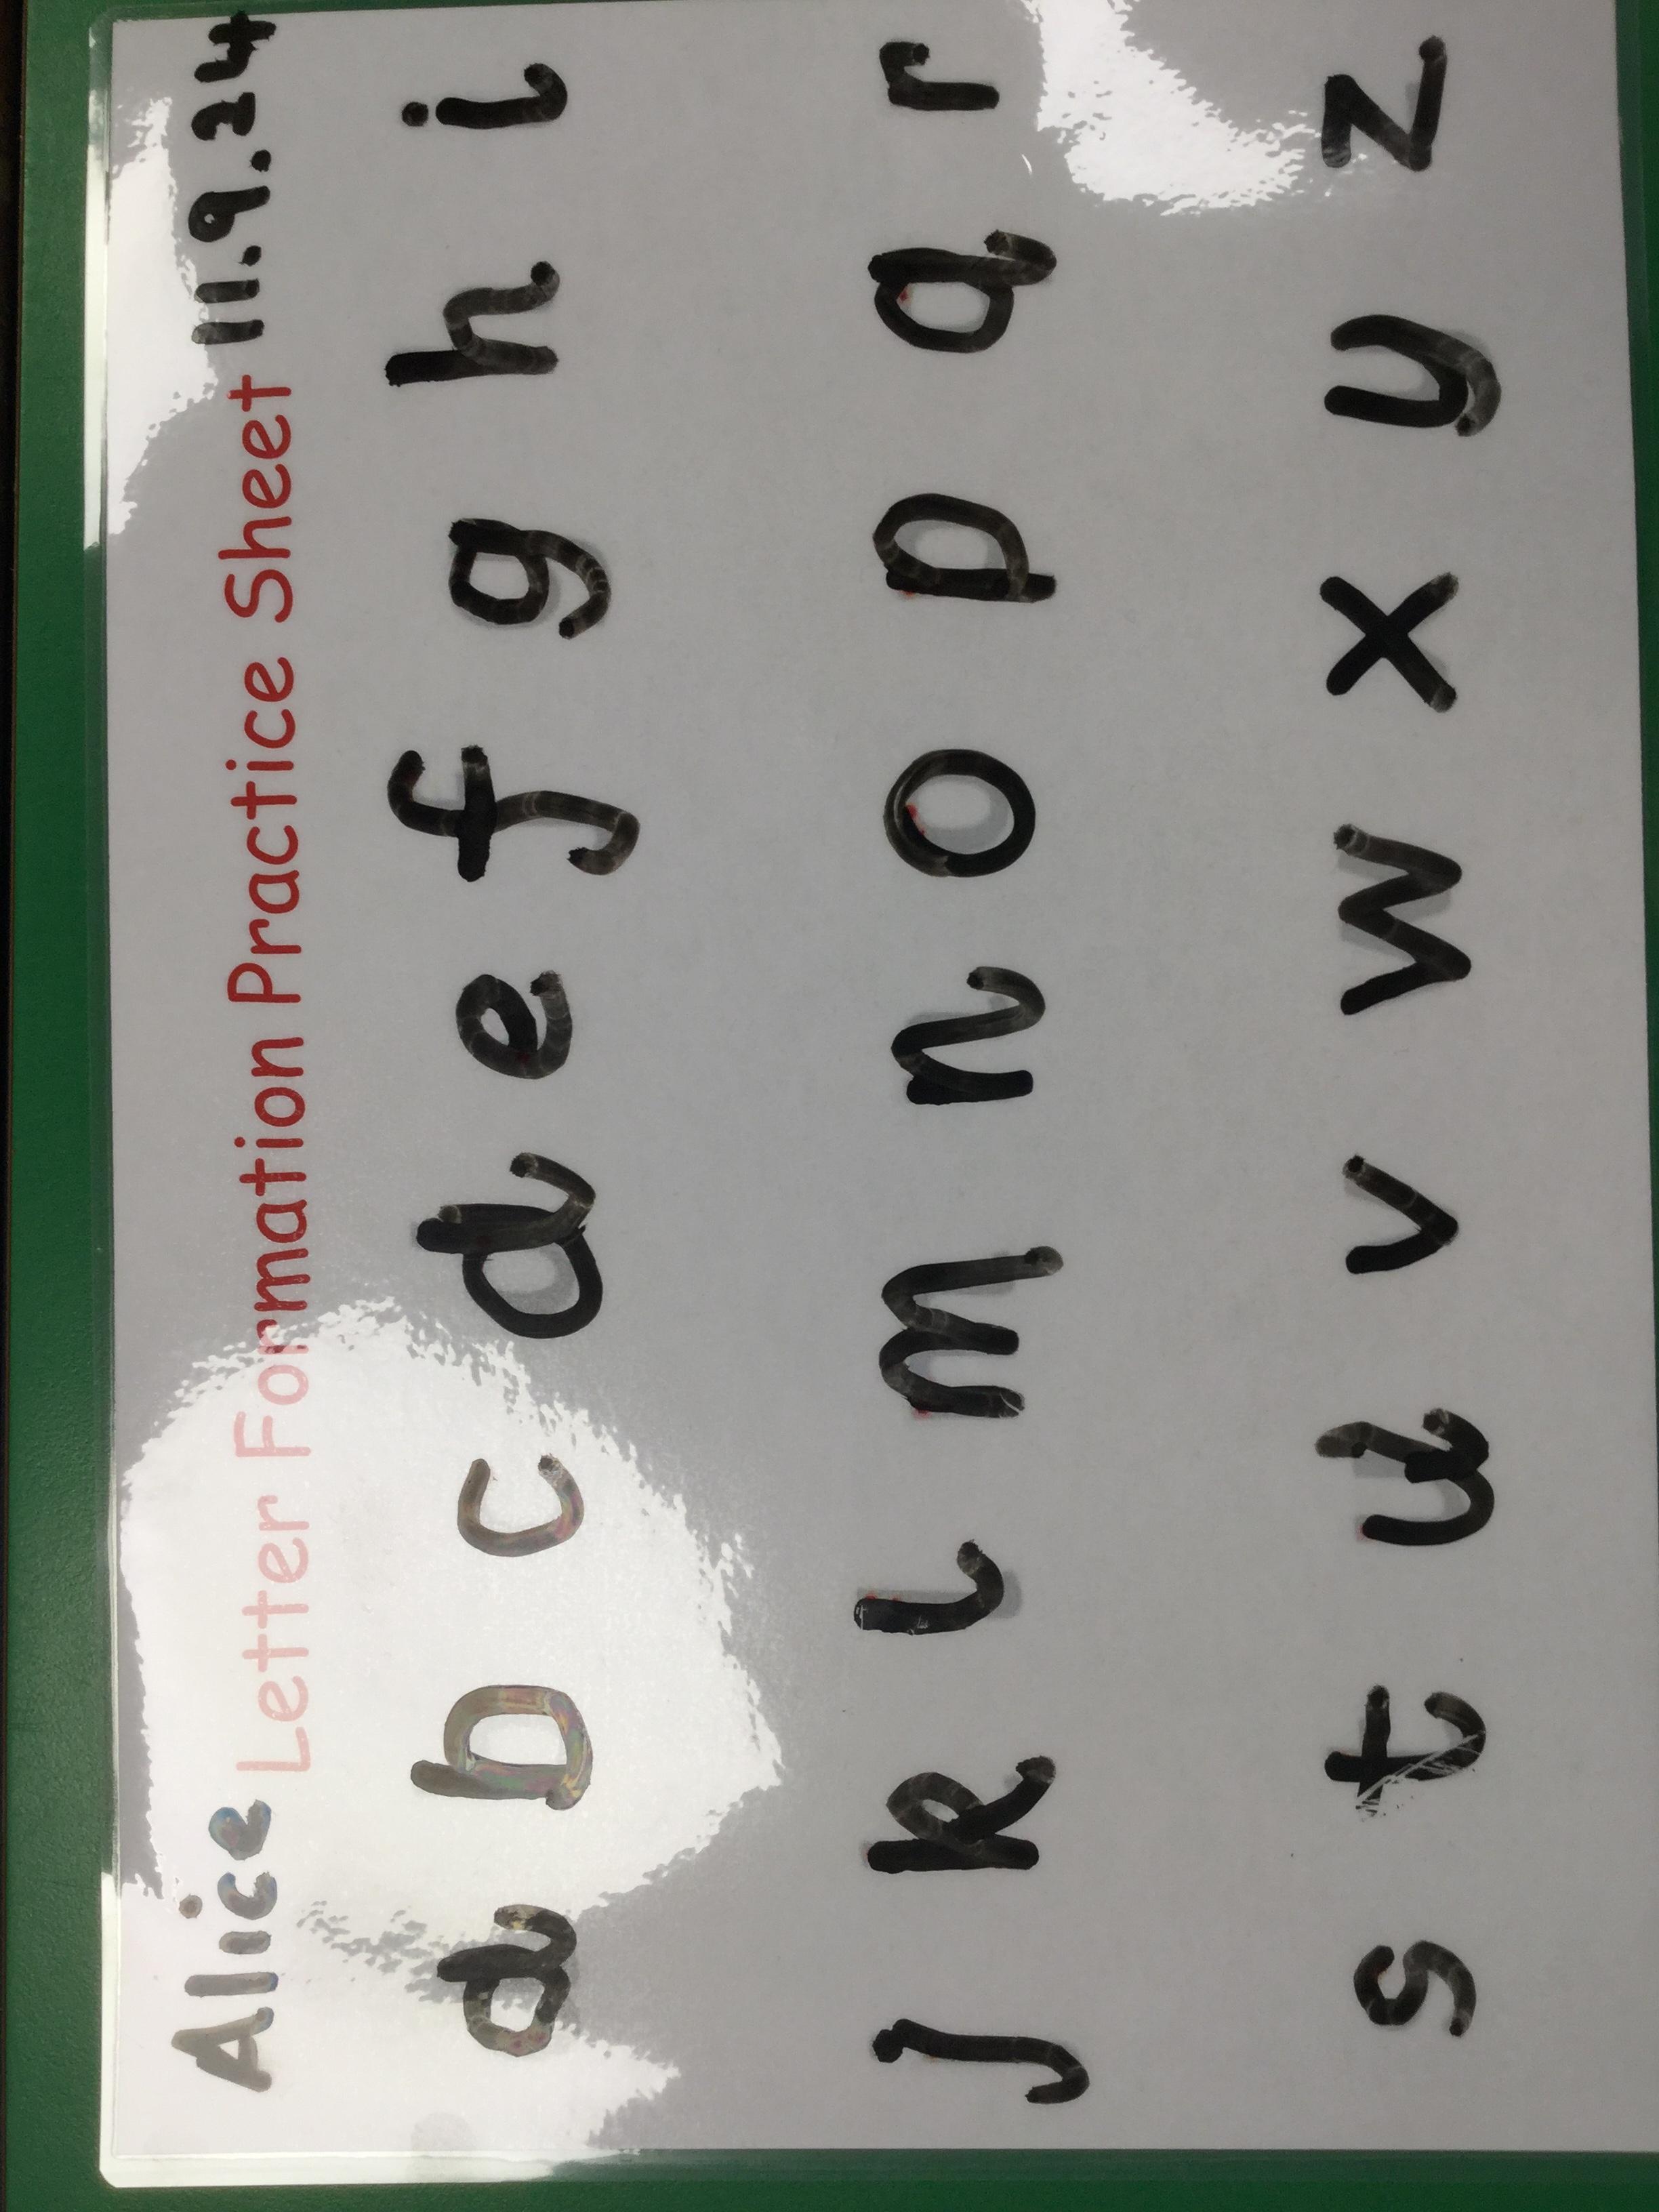 Alice Letter Formation Practice Sheet 11.9.24
a b c d e f g h i
j k l m n o p q r
s t u v w x y z